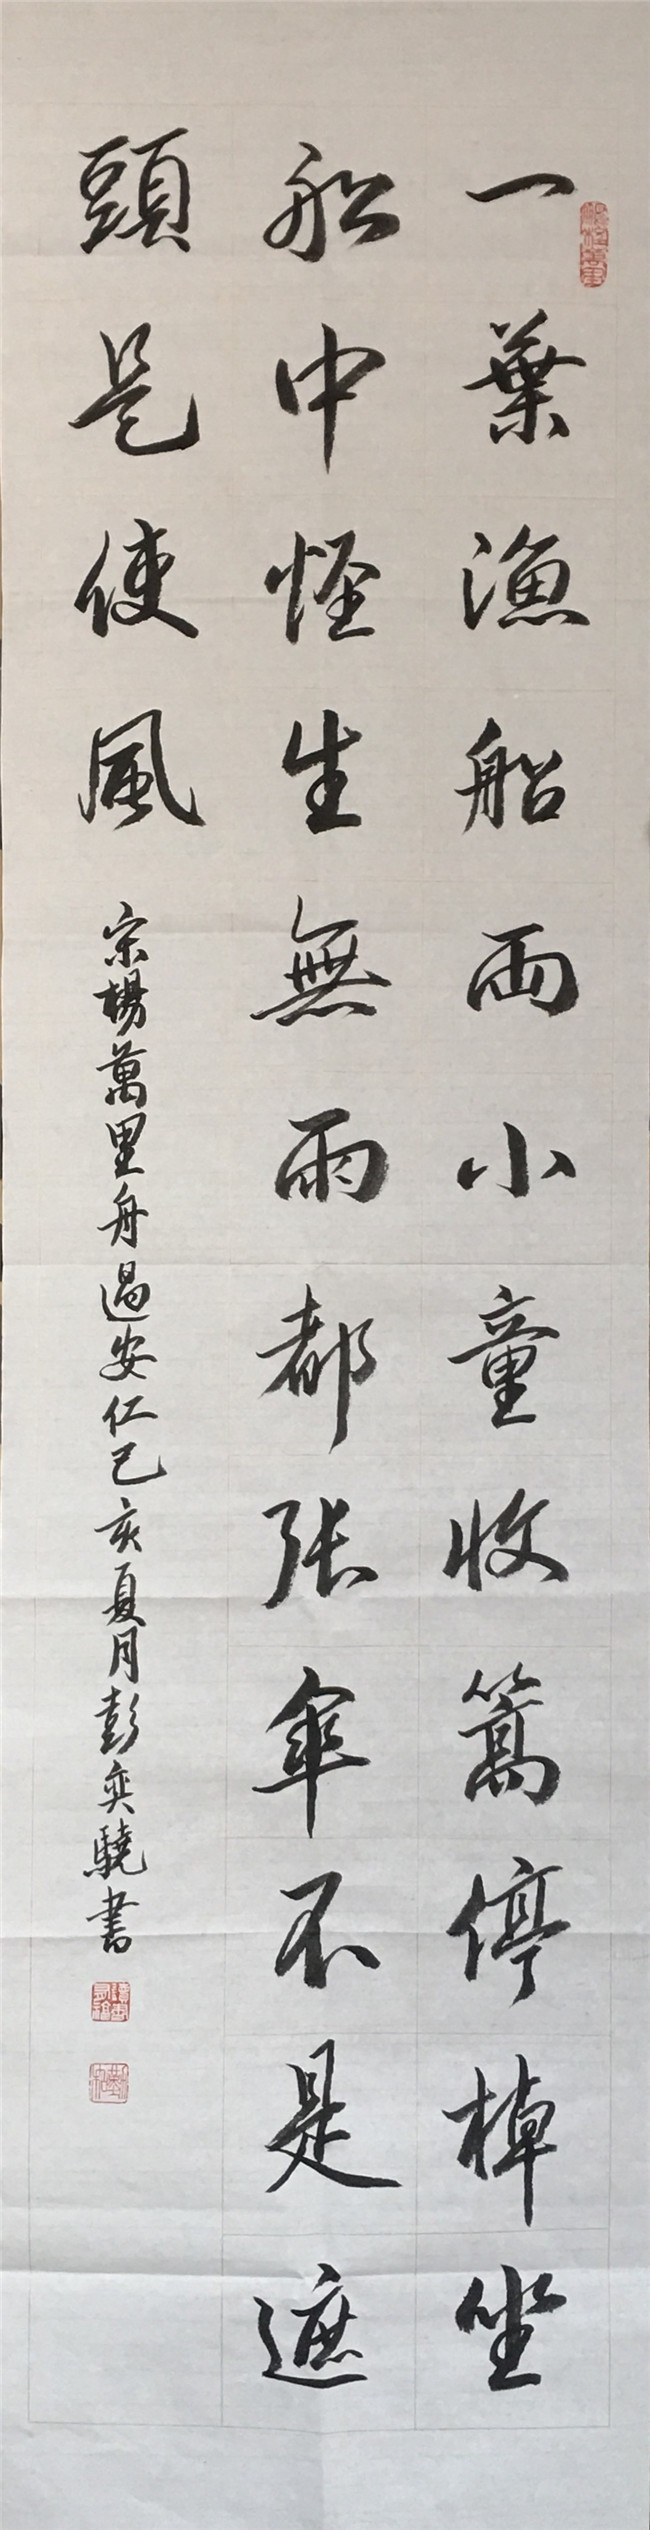 一葉漁船兩小童收篙停棹坐
船中怪生無雨都張傘不是遮
頭是使風
宋楊萬里舟過安仁己亥夏月彭奕驍書